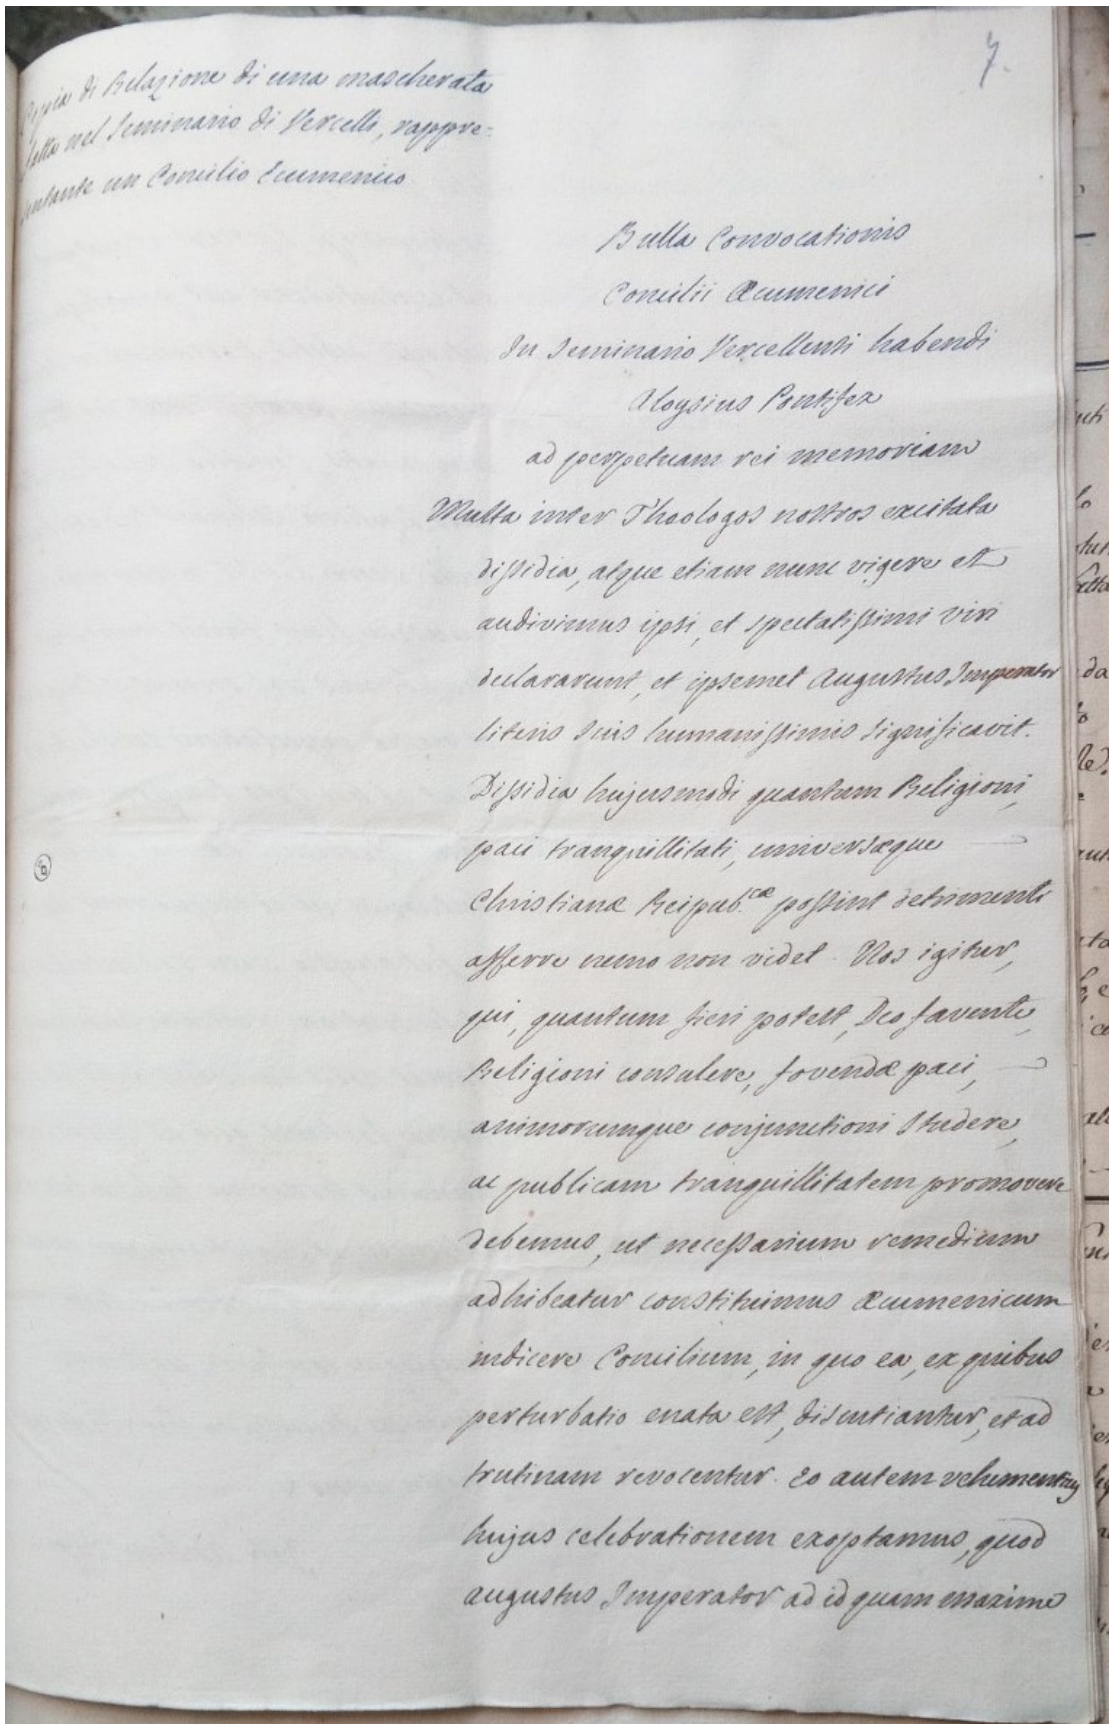 7.
Copia di Relazione di una mascherata
fatta nel Seminario di Vercelli, rappre=
sentante un Concilio Ecumenico
Bulla Convocationis
Concilii Œcumenici
In Seminario Vercellensi habendi
Aloysius Pontifex
ad perpetuam rei memoriam
Multa inter Theologos nostros excitata
dissidia, atque etiam nunc vigere et
audivimus ipsi, et spectatissimi viri
declararunt, et ipsemet Augustus Imperator
literis suis humanissimis significavit.
Dissidia hujusmodi quantum Religioni,
paci tranquillitati, universæque
Christianæ Reipub.cæ possint detrimenti
afferre nemo non videt. Nos igitur,
qui, quantum fieri potest, Deo favente,
Religioni consulere, fovendæ paci,
animorumque conjunctioni studere,
ac publicam tranquillitatem promovere
debemus, ut necessarium remedium
adhibeatur constituimus Œcumenicum
indicere Concilium, in quo ea, ex quibus
perturbatio enata est, discutiantur, et ad
trutinam revocentur. Eo autem vehementius
hujus celebrationem exoptamus, quod
augustus Imperator ad id quam maxime